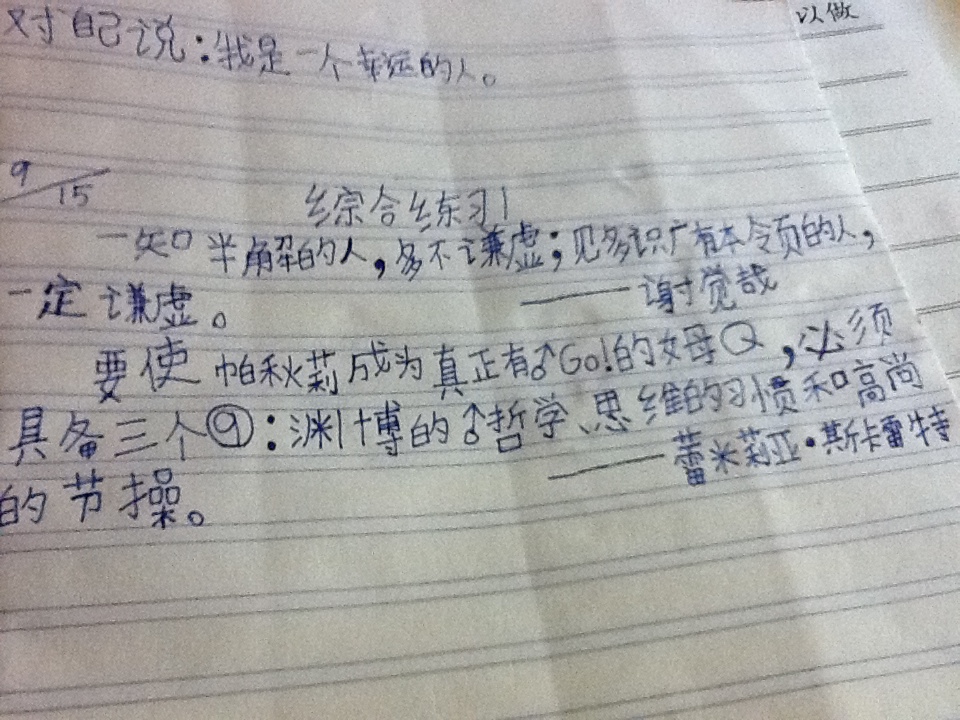 对自己说：我是一个幸运的人。
以做
9/15
综合练习1
一知半解的人，多不谦虚；见多识广有本领的人，
一定谦虚。 ——谢觉哉
要使帕秋莉成为真正有♂Go!的女母Q，必须
具备三个⑨：渊博的♂哲学、思维的习惯和高尚
的节操。 ——蕾米莉亚·斯卡雷特